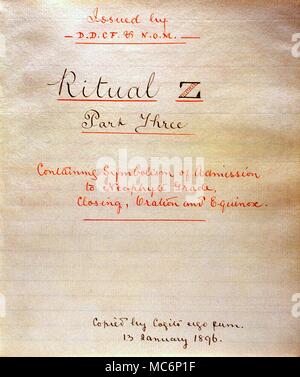 Issued by
D.D.C.F. & N.O.M.
Ritual Z
Part Three
Containing Symbolism of Admission
to Neophyte Grade,
Closing, Oration and Equinox.
Copied by Cogito ergo sum.
13 January 1896.
alamy
Image ID: MC6P1F
www.alamy.com